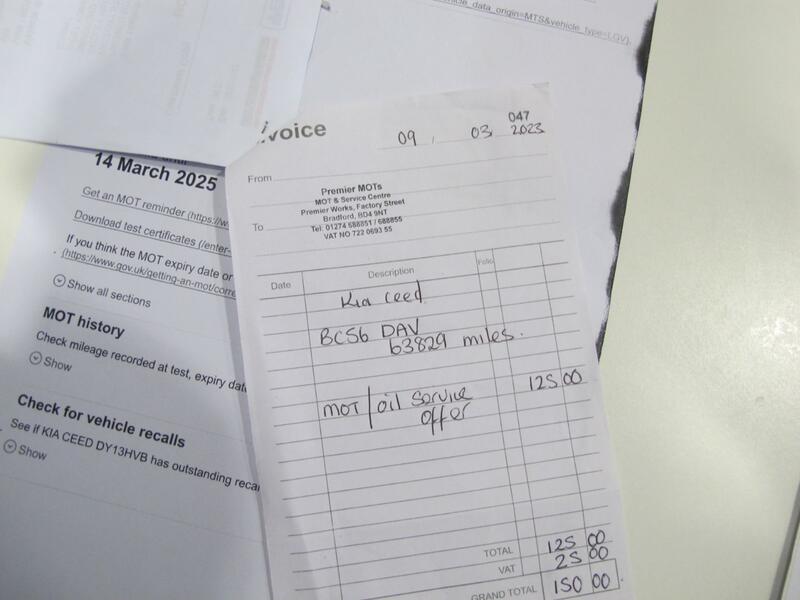 hicle_data_origin=MTS&vehicle_type=LGV),
14 March 2025
Get an MOT reminder (https://w
Download test certificates (/enter-
If you think the MOT expiry date or
(https://www.gov.uk/getting-an-mot/corre
Show all sections
MOT history
Check mileage recorded at test, expiry date
Show
Check for vehicle recalls
See if KIA CEED DY13HVB has outstanding recal
Show
nvoice
047
09 03 2023
From
Premier MOTs
MOT & Service Centre
Premier Works, Factory Street
Bradford, BD4 9NT
To
Tel: 01274 688851 / 688855
VAT NO 722 0693 55
Date Description Folio
Kia Ceed
BC56 DAV
63829 miles.
MOT/oil service 125 00
offer
TOTAL 125 00
VAT 25 00
GRAND TOTAL 150 00